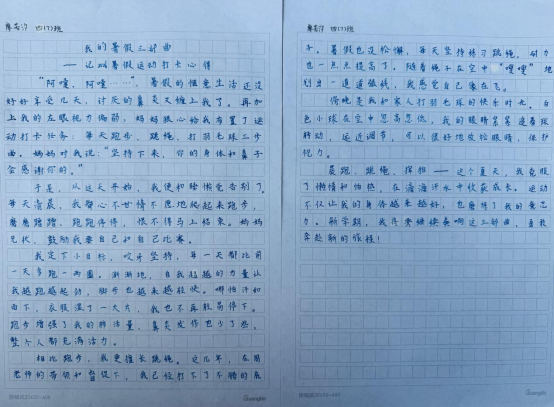 四(7)班
我的暑假三部曲
——记我暑假运动打卡心得
"阿嚏,阿嚏……",暑假的惬意生活还没
好好享受几天,讨厌的鼻炎又缠上我了。再加
上我的左眼视力偏弱,妈妈狠心给我布置了运
动打卡任务:每天跑步、跳绳、打羽毛球三步
曲。妈妈对我说:"坚持下来,你的身体和鼻子
会感谢你的。"
于是,从这天开始,我便和睡懒觉告别了。
每天清晨,我都心不甘情不愿地爬起来跑步,
磨磨蹭蹭,跑跑停停,恨不得马上结束。妈妈
见状,鼓励我要自己和自己比赛。
我定下小目标,咬牙坚持,每一天都比前
一天多跑一两圈。渐渐地,自我超越的力量让
我越跑越起劲,脚步也越来越轻快。哪怕汗如
雨下,衣服湿了一大片,我也不再轻易停下。
跑步增强了我的肺活量,鼻炎发作也少了些,
整个人都充满活力。
相比跑步,我更擅长跳绳。这几年,在周
老师的带领和督促下,我已经打下了不错的底
四(7)班
子。暑假也没松懈,每天坚持练习跳绳,耐力
也一点点提高了。随着绳子在空中"嗖嗖"地
划出一道道弧线,我感觉自己像在飞。
傍晚是我和家人打羽毛球的快乐时光。白
色小球在空中忽高忽低,我的眼睛紧紧追着球
转动,远近调节,可以很好地放松眼睛,保护
视力。
晨跑、跳绳、挥拍——这个夏天,我克服
了懒惰和怕热,在滴滴汗水中收获成长。运动
不仅让我的身体越来越好,也磨练了我的意志
力。新学期,我将要继续奏响这三部曲,
新的旅程!
Guangbo